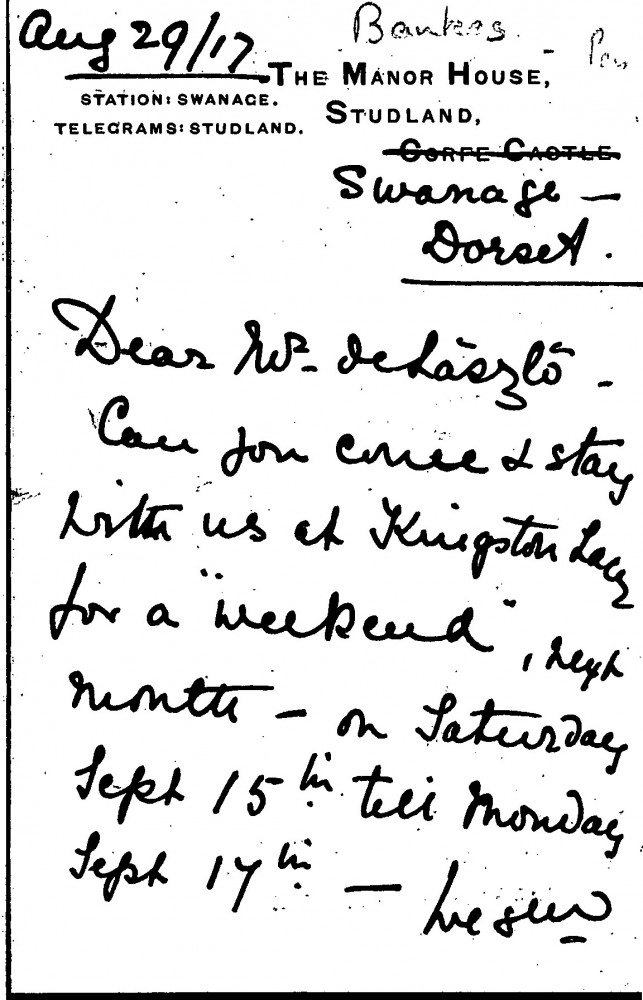 Aug 29/17
Bankes.
THE MANOR HOUSE,
STATION: SWANAGE.
TELEGRAMS: STUDLAND.
STUDLAND,
CORFE CASTLE.
Swanage —
Dorset.
Dear Mr. de László -
Can you come & stay
with us at Kingston Lacy
for a "weekend", next
month — on Saturday
Sept 15th till Monday
Sept 17th —